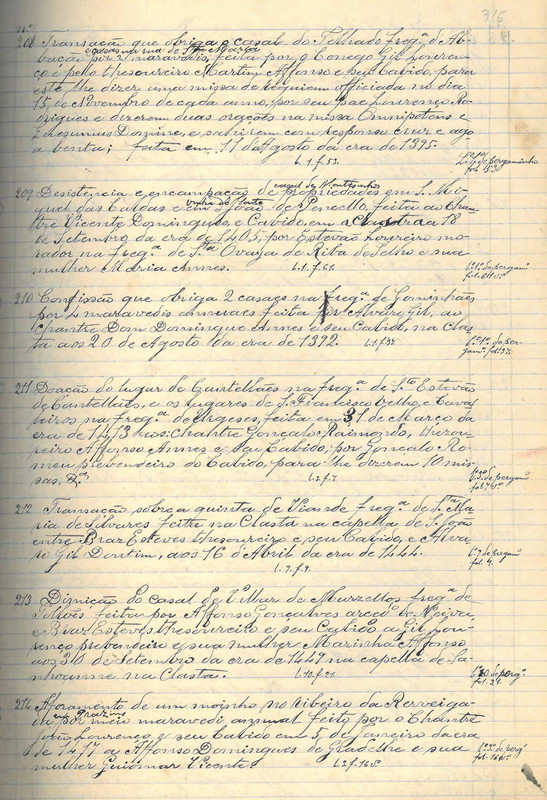 315
nº
208 Transação que obriga o casal do Telhado freg.ª d'Ab-
e casas na rua de S.ta Maria
vação por 2 maravedis, feita por o Conego Gil Louren-
ço e pelo thesoureiro Martim Affonso e seu Cabido, para
este lhe dizer uma missa de requiem officiada no dia
15 de Novembro de cada anno, por seu pae Lourenço Ro-
drigues e dizerem duas orações na missa Omnipotens e
Quesumus Domine, e sahirem com responso cruz e ago
a benta; feita em 11 d'Agosto da era de 1395.
L. 1. f. 53.
de pergaminho
fol. 53
209 Desistencia e encampação de propriedades em S. Mi-
casal de Montesinho
guel das Caldas e em S. João de Pencello feita ao Chan-
vinha do Souto
tre Vicente Domingues e Cabido, em a Claustra a 18
de Setembro da era de 1405, por Estevão Loureiro mo-
rador na freg.ª de S.ta Ovaya de Riba de Selho e sua
mulher Maria Annes.
L. 1. f. 61.
L.º 1.º de pergam.º
fol. 61 v.º
210 Confissão que obriga 2 casaes na freg.ª de Gominhães
por 4 maravedis annuaes feita por Alvaro Gil, ao
Chantre Dom Domingue Annes e seu Cabido, na Clas-
ta aos 20 de Agosto da era de 1392.
L. 1. f. 37.
L.º 1.º de per-
gam.º fol. 37.
211 Doação do lugar de Cantellães na freg.ª de S.to Estevão
de Cantellães, e os lugares de S. Francisco Velho, e Caval-
leiros na freg.ª de Urgeses, feita em 31 de Março da
era de 1413 aos: Chantre Gonçalo Raimondo, thezou-
reiro Affonso Annes e seu Cabido, por Gonçalo Ro-
meu prebendeiro do Cabido, para lhe dizerem 10 mis-
sas, &.ª
L. 2. f. 7.
de pergam.º
fol. 7 v.º
212 Transação sobre a quinta de Viande freg.ª de S.ta Ma-
ria de Silvares feita na Clasta na capella de S. João
entre Braz Esteves thesoureiro e seu Cabido, e Alva-
ro Gil Dontim, aos 16 d'Abril da era de 1444.
L. 9. f. 9.
L.º 9 de pergam.º
fol. 9.
213 Dimição do casal de Villar de Murzellos freg.ª de
Tolões, feita por Affonso Gonçalves arced.º de Neiva,
e Braz Esteves thesoureiro e seu Cabido, a Gil Lou-
renço prebendeiro e sua mulher Marinha Affonso
aos 30 de Setembro da era de 1447 na capella de Sa-
nhoanne na Clasta.
L. 10. f. 21.
L.º 10 de perg.º
fol. 21.
214 Aforamento de um moinho no ribeiro da Rerveiga-
em Prazins
da por meio maravedi annual feito por o Chantre
João Lourenço e seu Cabido em 5 de Janeiro da era
de 1417 a Affonso Domingues de Gradelhe e sua
mulher Guiomar Vicente.
L. 2. f. 16 v.º
L.º 2.º de perg.º
fol. 16 v.º